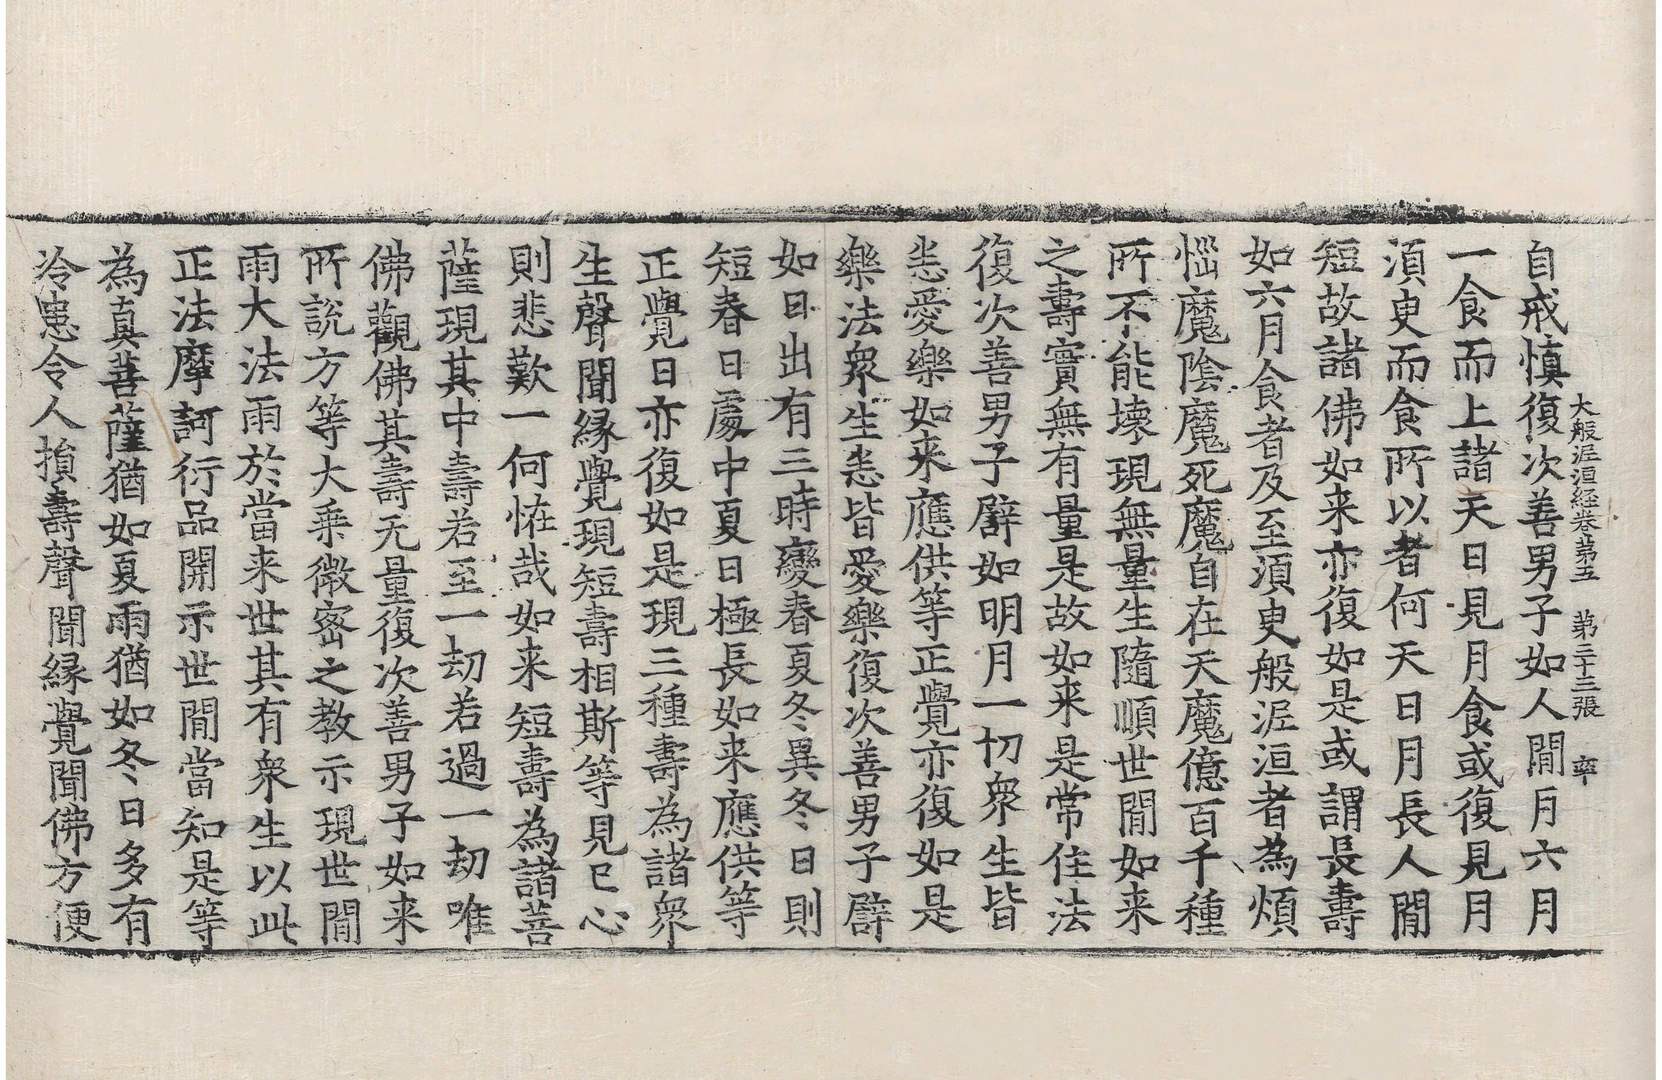 大般泥洹経巻第五　第三十三張　率
自戒慎復次善男子如人間月六月
一食而上諸天日見月食或復見月
湏臾而食所以者何天日月長人間
短故諸佛如来亦復如是或謂長壽
如六月食者及至湏臾般泥洹者為煩
惱魔陰魔死魔自在天魔億百千種
所不能壊現無量生隨順世間如来
之壽實無有量是故如来是常住法
復次善男子譬如明月一切衆生皆
悉愛樂如来應供等正覺亦復如是
樂法衆生悉皆愛樂復次善男子譬
如日出有三時變春夏冬異冬日則
短春日處中夏日極長如来應供等
正覺日亦復如是現三種壽為諸衆
生聲聞縁覺現短壽相斯等見已心
則悲歎一何恠哉如来短壽為諸菩
薩現其中壽若至一劫若過一劫唯
佛觀佛其壽无量復次善男子如来
所説方等大乘微密之教示現世間
雨大法雨於當来世其有衆生以此
正法摩訶衍品開示世間當知是等
為真菩薩猶如夏雨猶如冬日多有
冷患令人損壽聲聞縁覺聞佛方便